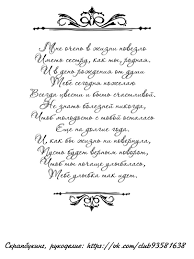 Мне очень в жизни повезло
Иметь сестру, как ты, родная,
И в день рождения от души
Тебе сегодня пожелаю
Всегда цвести и быть счастливой,
Не знать болезней никогда,
Чтоб молодость с тобой осталась
Еще на долгие года,
И, как бы жизнь ни повернулась,
Пусть будет верным поворот,
Чтоб ты почаще улыбалась,
Тебе улыбка так идет.
Скрапбукинг, рукоделие: https://ok.com/club93581638